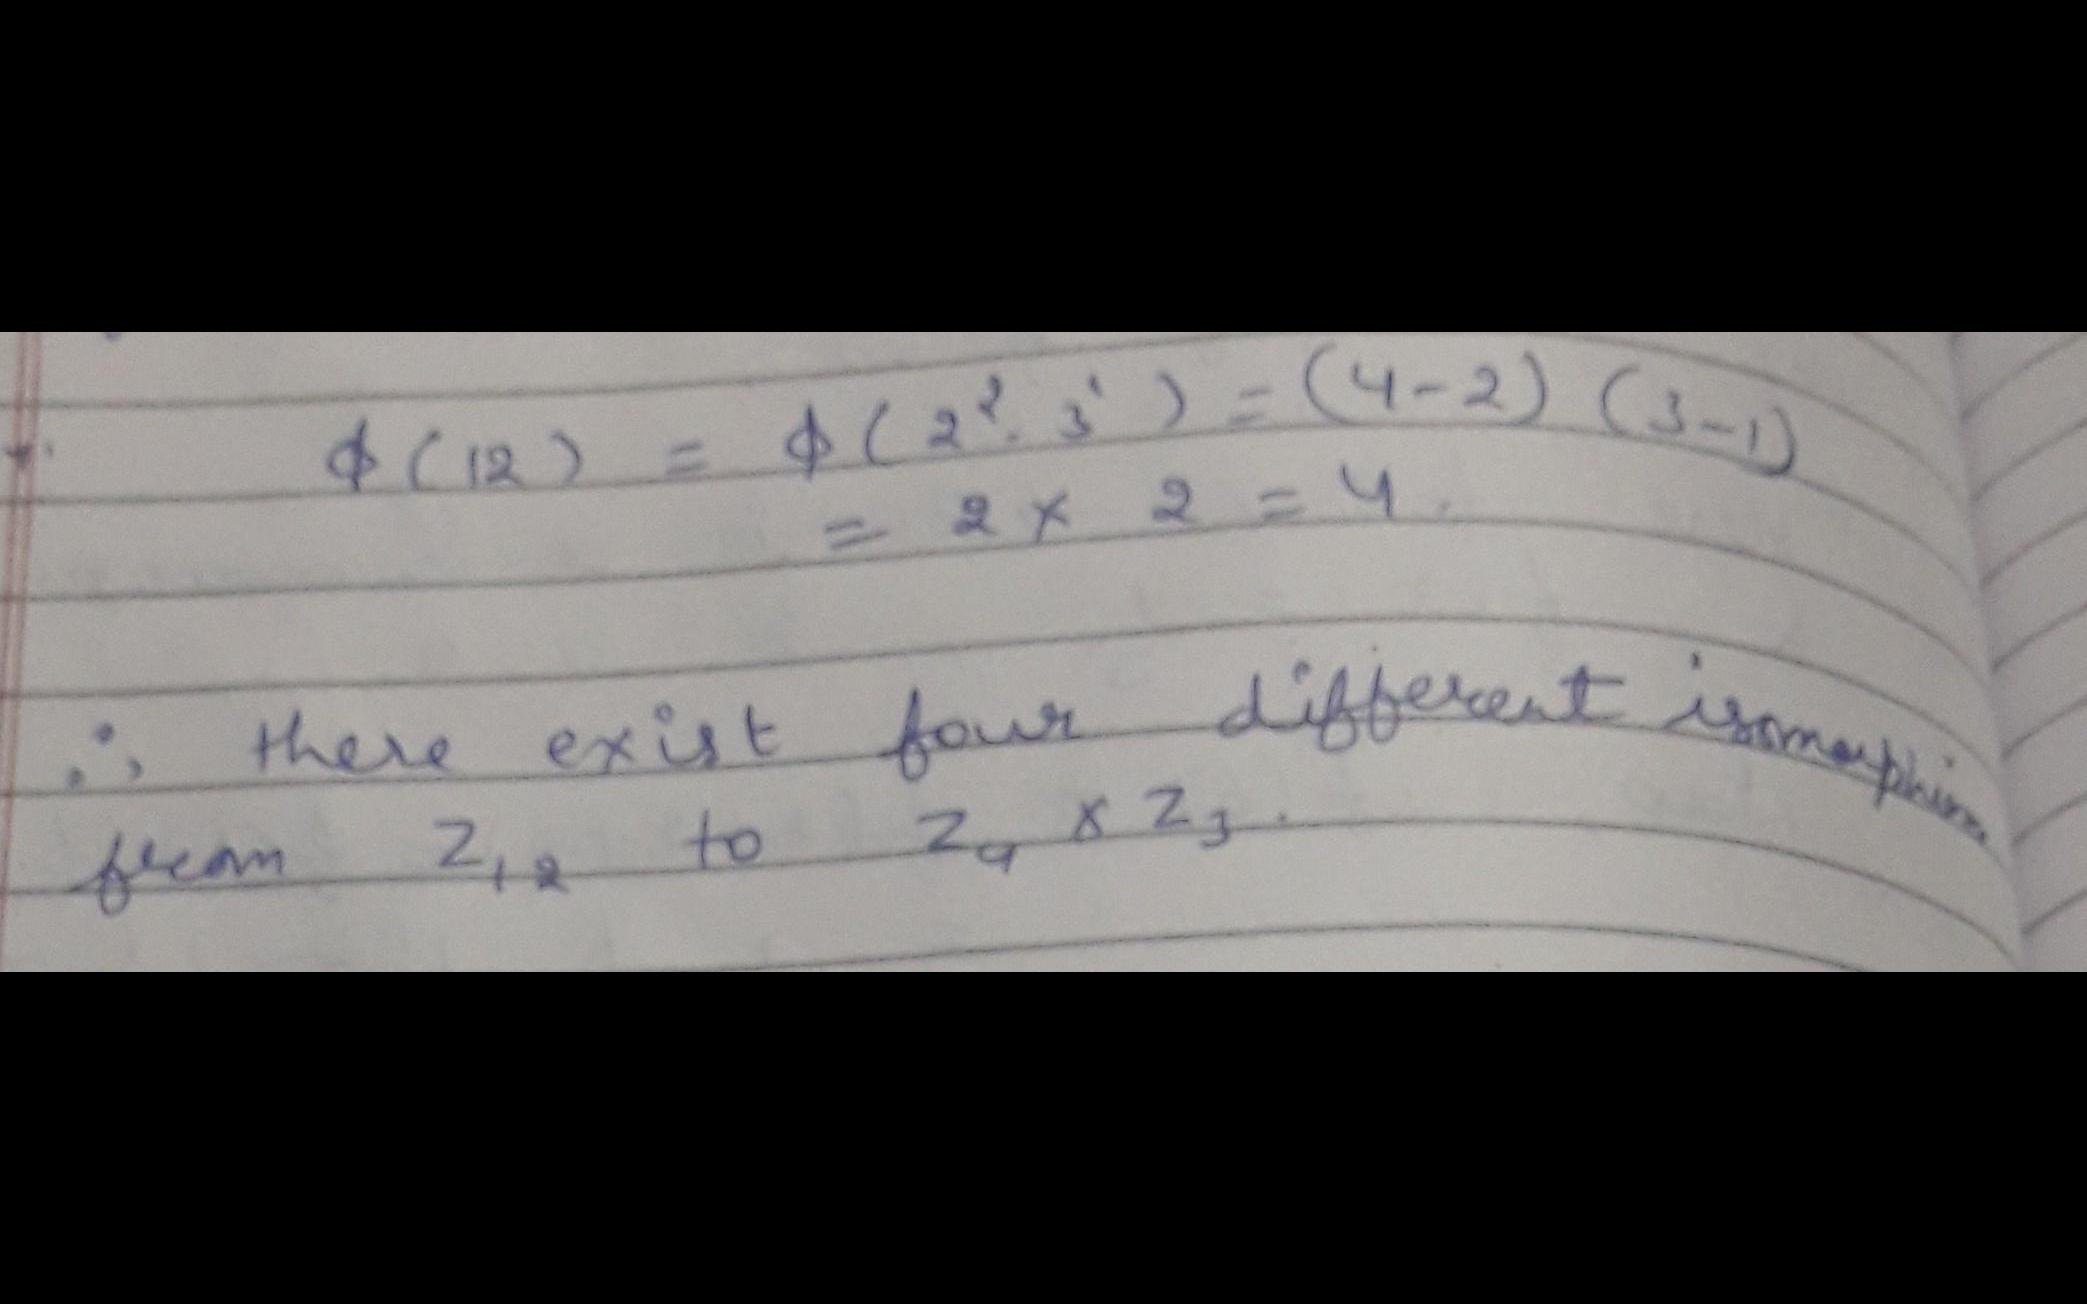 ϕ(12) = ϕ(2².3¹) = (4-2) (3-1)
= 2 × 2 = 4.
∴, there exist four different isomorphism
from Z₁₂ to Z₄ × Z₃.